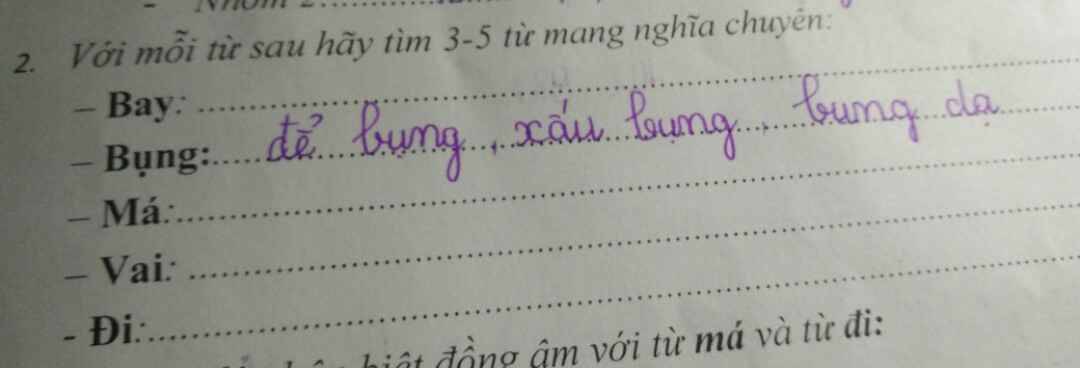 2. Với mỗi từ sau hãy tìm 3-5 từ mang nghĩa chuyển:
– Bay:
– Bụng: để bụng, xấu bụng, bụng dạ
– Má:
– Vai:
- Đi:
biệt đồng âm với từ má và từ đi: